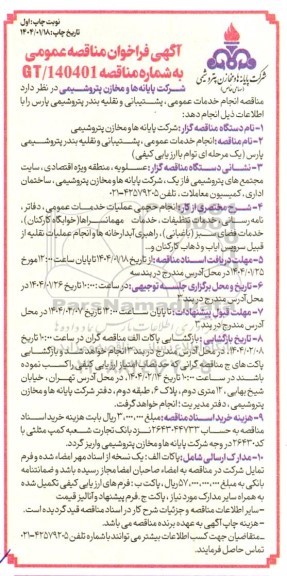 نوبت چاپ: اول
تاریخ چاپ: ۱۴۰۴/۰۱/۱۸
آگهی فراخوان مناقصه عمومی
به شماره مناقصه GT/140401
شرکت پایانه ها و مخازن پتروشیمی
(سهامی خاص)
شرکت پایانه ها و مخازن پتروشیمی در نظر دارد
مناقصه انجام خدمات عمومی، پشتیبانی و نقلیه بندر پتروشیمی پارس را با
اطلاعات ذیل انجام دهد:
۱- نام دستگاه مناقصه گزار: شرکت پایانه ها و مخازن پتروشیمی
۲- نام مناقصه: انجام خدمات عمومی، پشتیبانی و نقلیه بندر پتروشیمی
پارس (یک مرحله ای توام با ارزیابی کیفی)
۳- نشانی دستگاه مناقصه گزار: عسلویه، منطقه ویژه اقتصادی، سایت
مجتمع های پتروشیمی فاز یک، شرکت پایانه ها و مخازن پتروشیمی، ساختمان
اداری، کمیسیون معاملات، تلفن ۴۲۵۷۹۲۰۵-۰۲۱
۴- شرح مختصری از کار: انجام حجمی عملیات خدمات عمومی، دفاتر،
نامه رسانی، خدمات تنظیفات، خدمات مهمانسراها (خوابگاه کارکنان)،
خدمات فضای سبز (باغبانی)، راهبری آبدارخانه ها و انجام عملیات نقلیه از
قبیل سرویس ایاب و ذهاب کارکنان و...
۵- مهلت دریافت اسناد مناقصه: از تاریخ ۱۴۰۴/۰۱/۱۸ تا پایان ساعت ۱۲:۰۰ مورخ
۱۴۰۴/۰۱/۲۵ در محل آدرس مندرج در بند سه
۶- تاریخ و محل برگزاری جلسه توجیهی: در ساعت ۱۰:۰۰ تاریخ ۱۴۰۴/۰۱/۲۶ در
محل آدرس مندرج در بند ۳
۷- مهلت قبول پیشنهادات: تا پایان ساعت ۱۲:۰۰ تاریخ ۱۴۰۴/۰۲/۰۷ در محل
آدرس مندرج در بند ۳
۸- تاریخ بازگشایی: بازگشایی پاکات الف مناقصه گران در ساعت ۱۰:۰۰ تاریخ
۱۴۰۴/۰۲/۰۸ در محل آدرس مندرج در بند ۳ انجام خواهد شد و بازگشایی
پاکات های ج مناقصه گرانی که حد نصاب امتیاز ارزیابی کیفی را کسب نموده
باشند در ساعت ۱۰:۰۰ تاریخ ۱۴۰۴/۰۲/۱۴ در محل آدرس تهران، خیابان
شیخ بهایی، ۱۲ متری دوم، پلاک ۶، طبقه دوم، دفتر شرکت پایانه ها و مخازن
پتروشیمی، دفتر مدیریت؛ انجام خواهد گرفت.
۹- هزینه خرید اسناد مناقصه: مبلغ ۳,۰۰۰,۰۰۰ ریال بابت هزینه خرید اسناد
مناقصه به حساب ۲۶۴۳۰۴۴۷۳۳ نزد بانک تجارت شعبه کمپ مثلثی با
کد ۲۶۴۳۰ در وجه شرکت پایانه ها و مخازن پتروشیمی واریز گردد.
۱۰- مدارک ارسالی شامل: پاکات الف: یک نسخه از اسناد مهر امضاء شده و فرم
تمایل شرکت در مناقصه به امضاء صاحبان امضا مجاز رسیده باشد و ضمانتنامه
بانکی به مبلغ ۵۷,۰۰۰,۰۰۰,۰۰۰ ریال، پاکت ب: فرم های ارزیابی کیفی تکمیل شده
به همراه سایر مدارک مورد نیاز، پاکت ج. فرم پیشنهاد و آنالیز قیمت
- سایر اطلاعات مناقصه و جزئیات شرح کار در اسناد مناقصه قید گردیده است.
- هزینه چاپ آگهی به عهده برنده مناقصه می باشد.
- متقاضیان جهت کسب اطلاعات بیشتر می توانند با شماره تلفن ۴۲۵۷۹۲۰۵-۰۲۱
تماس حاصل فرمایند.